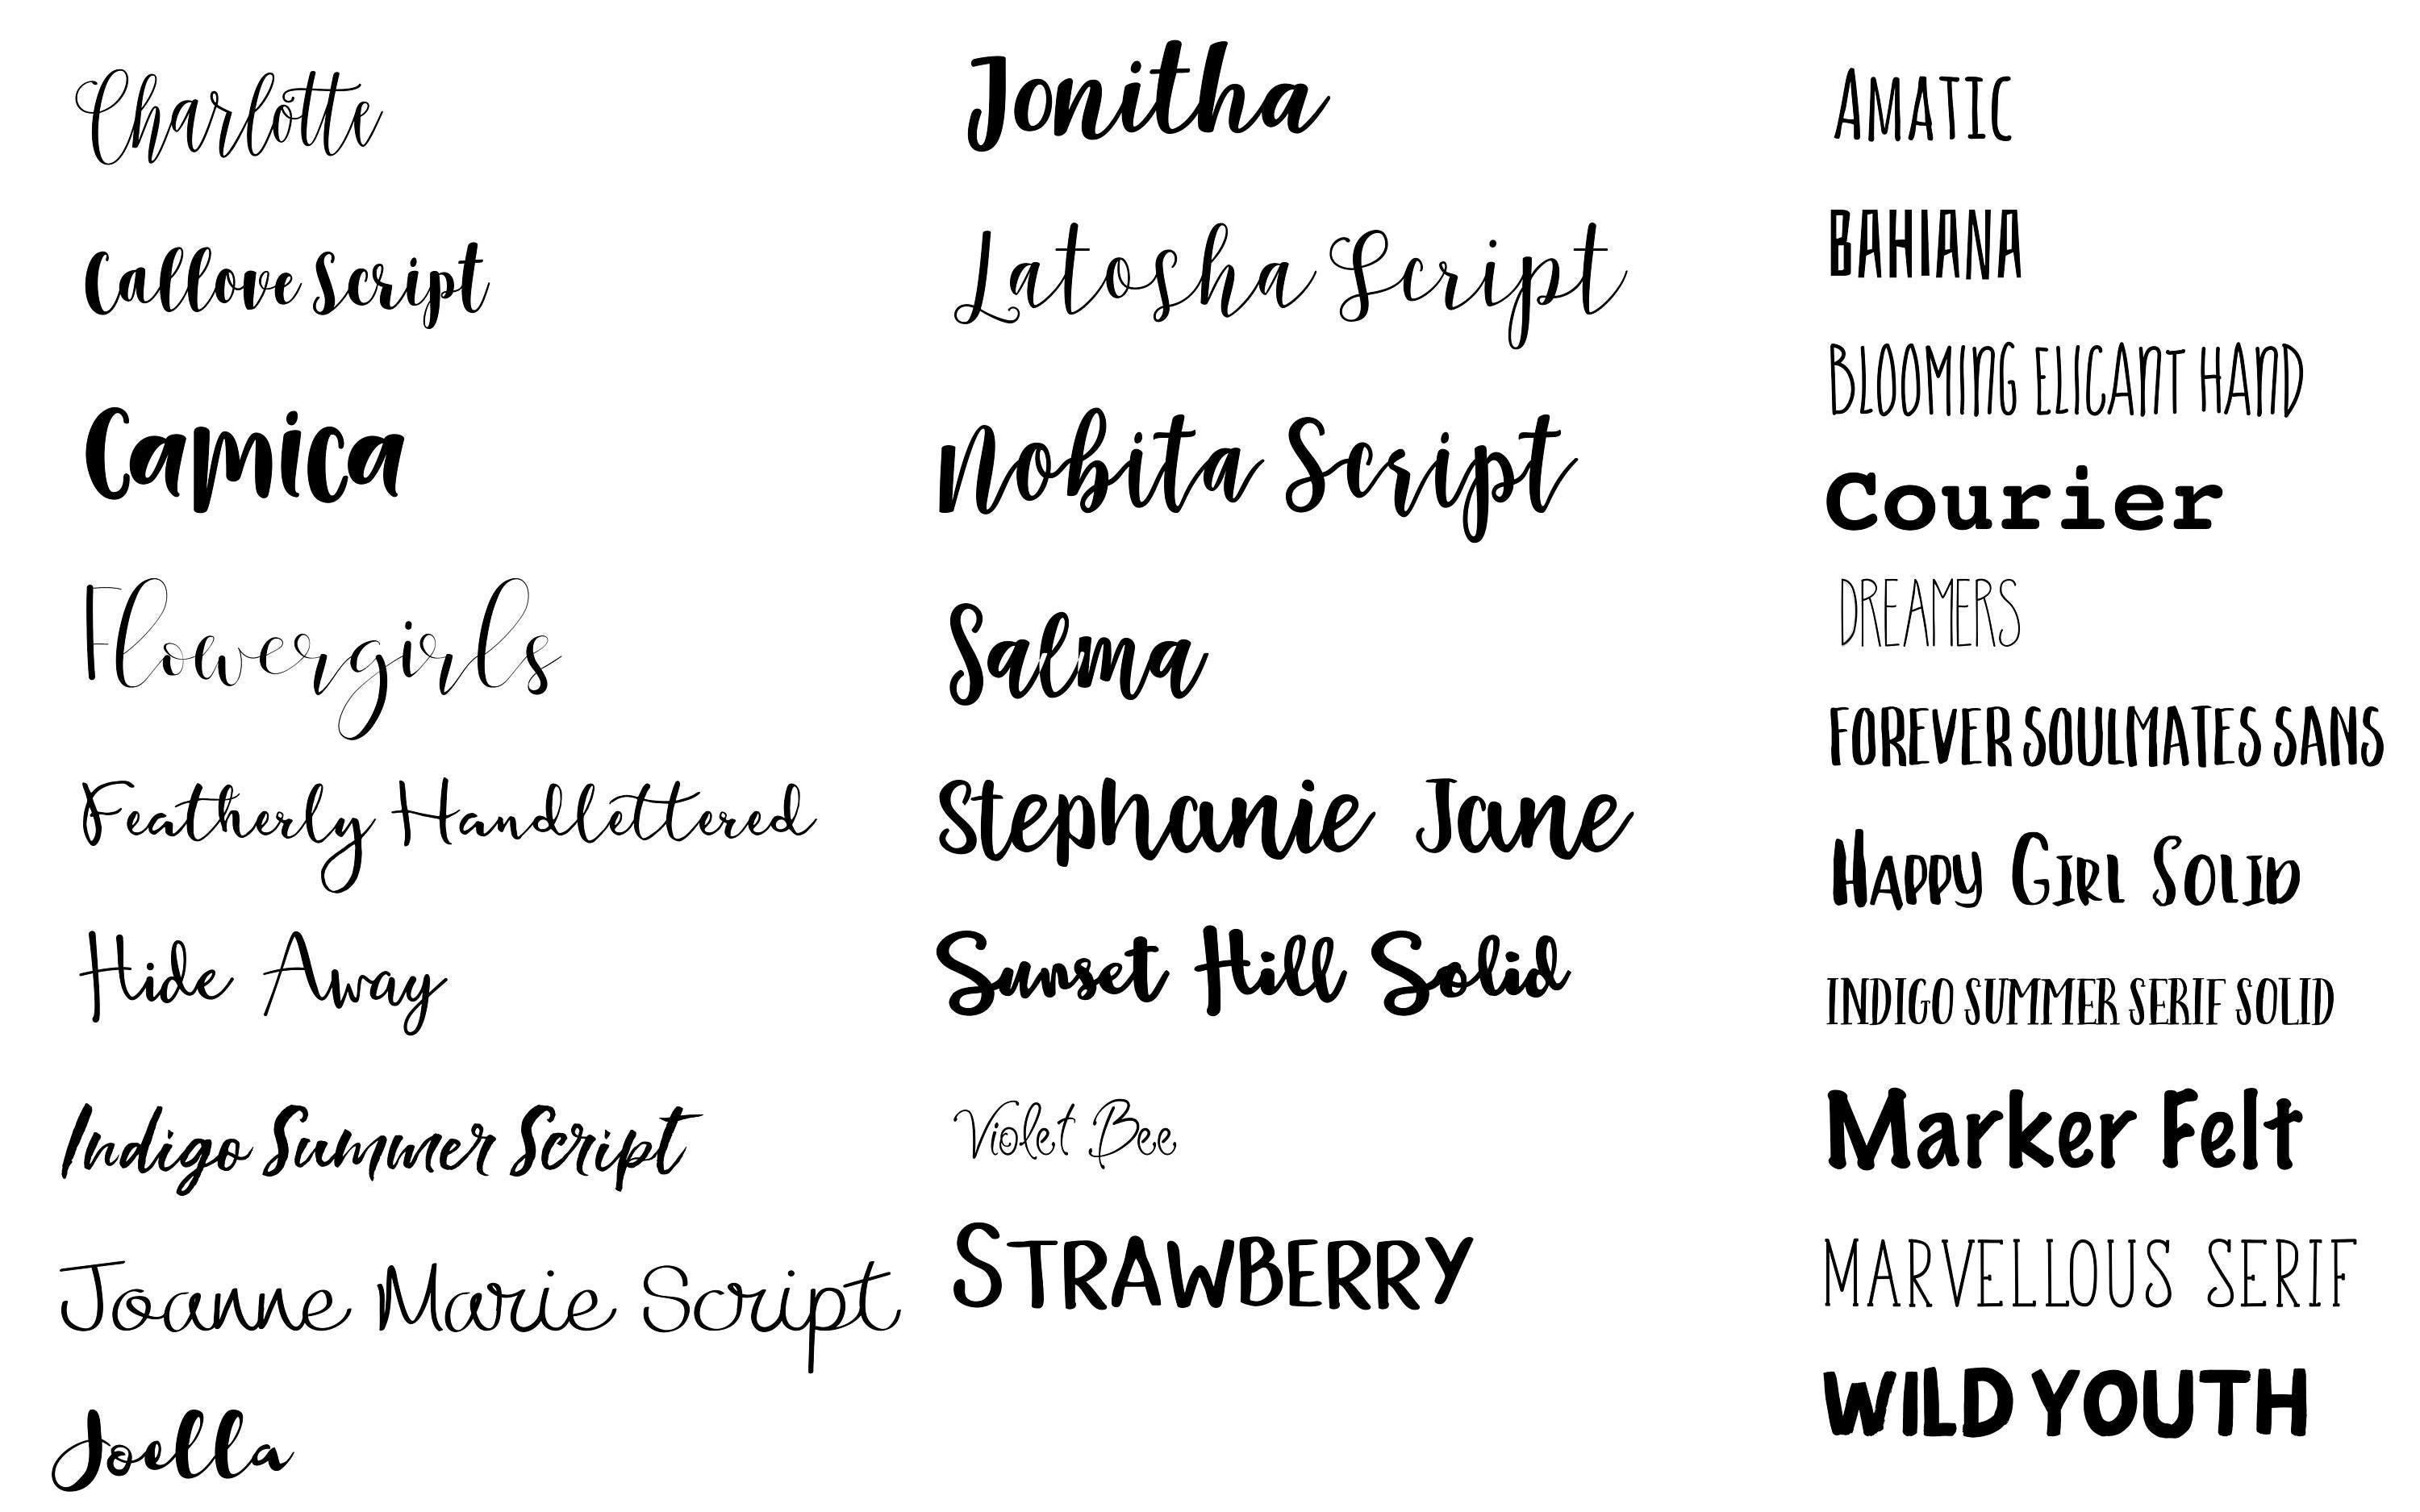 Charlotte
Callove Script
Camica
Flowergirls
Featherly Handlettered
Hide Away
Indigo Summer Script
Joanne Marie Script
Joella
Jonitha
Latosha Script
Nobita Script
Salma
Stephanie Jane
Sunset Hill Solid
Violet Bee
STRAWBERRY
AMATIC
BAHIANA
BLOOMING ELICANT HAND
Courier
DREAMERS
FOREVER SOULMATES SANS
HAPPY GIRL SOLID
INDIGO SUMMER SERIF SOLID
Marker Felt
MARVELLOUS SERIF
WILD YOUTH